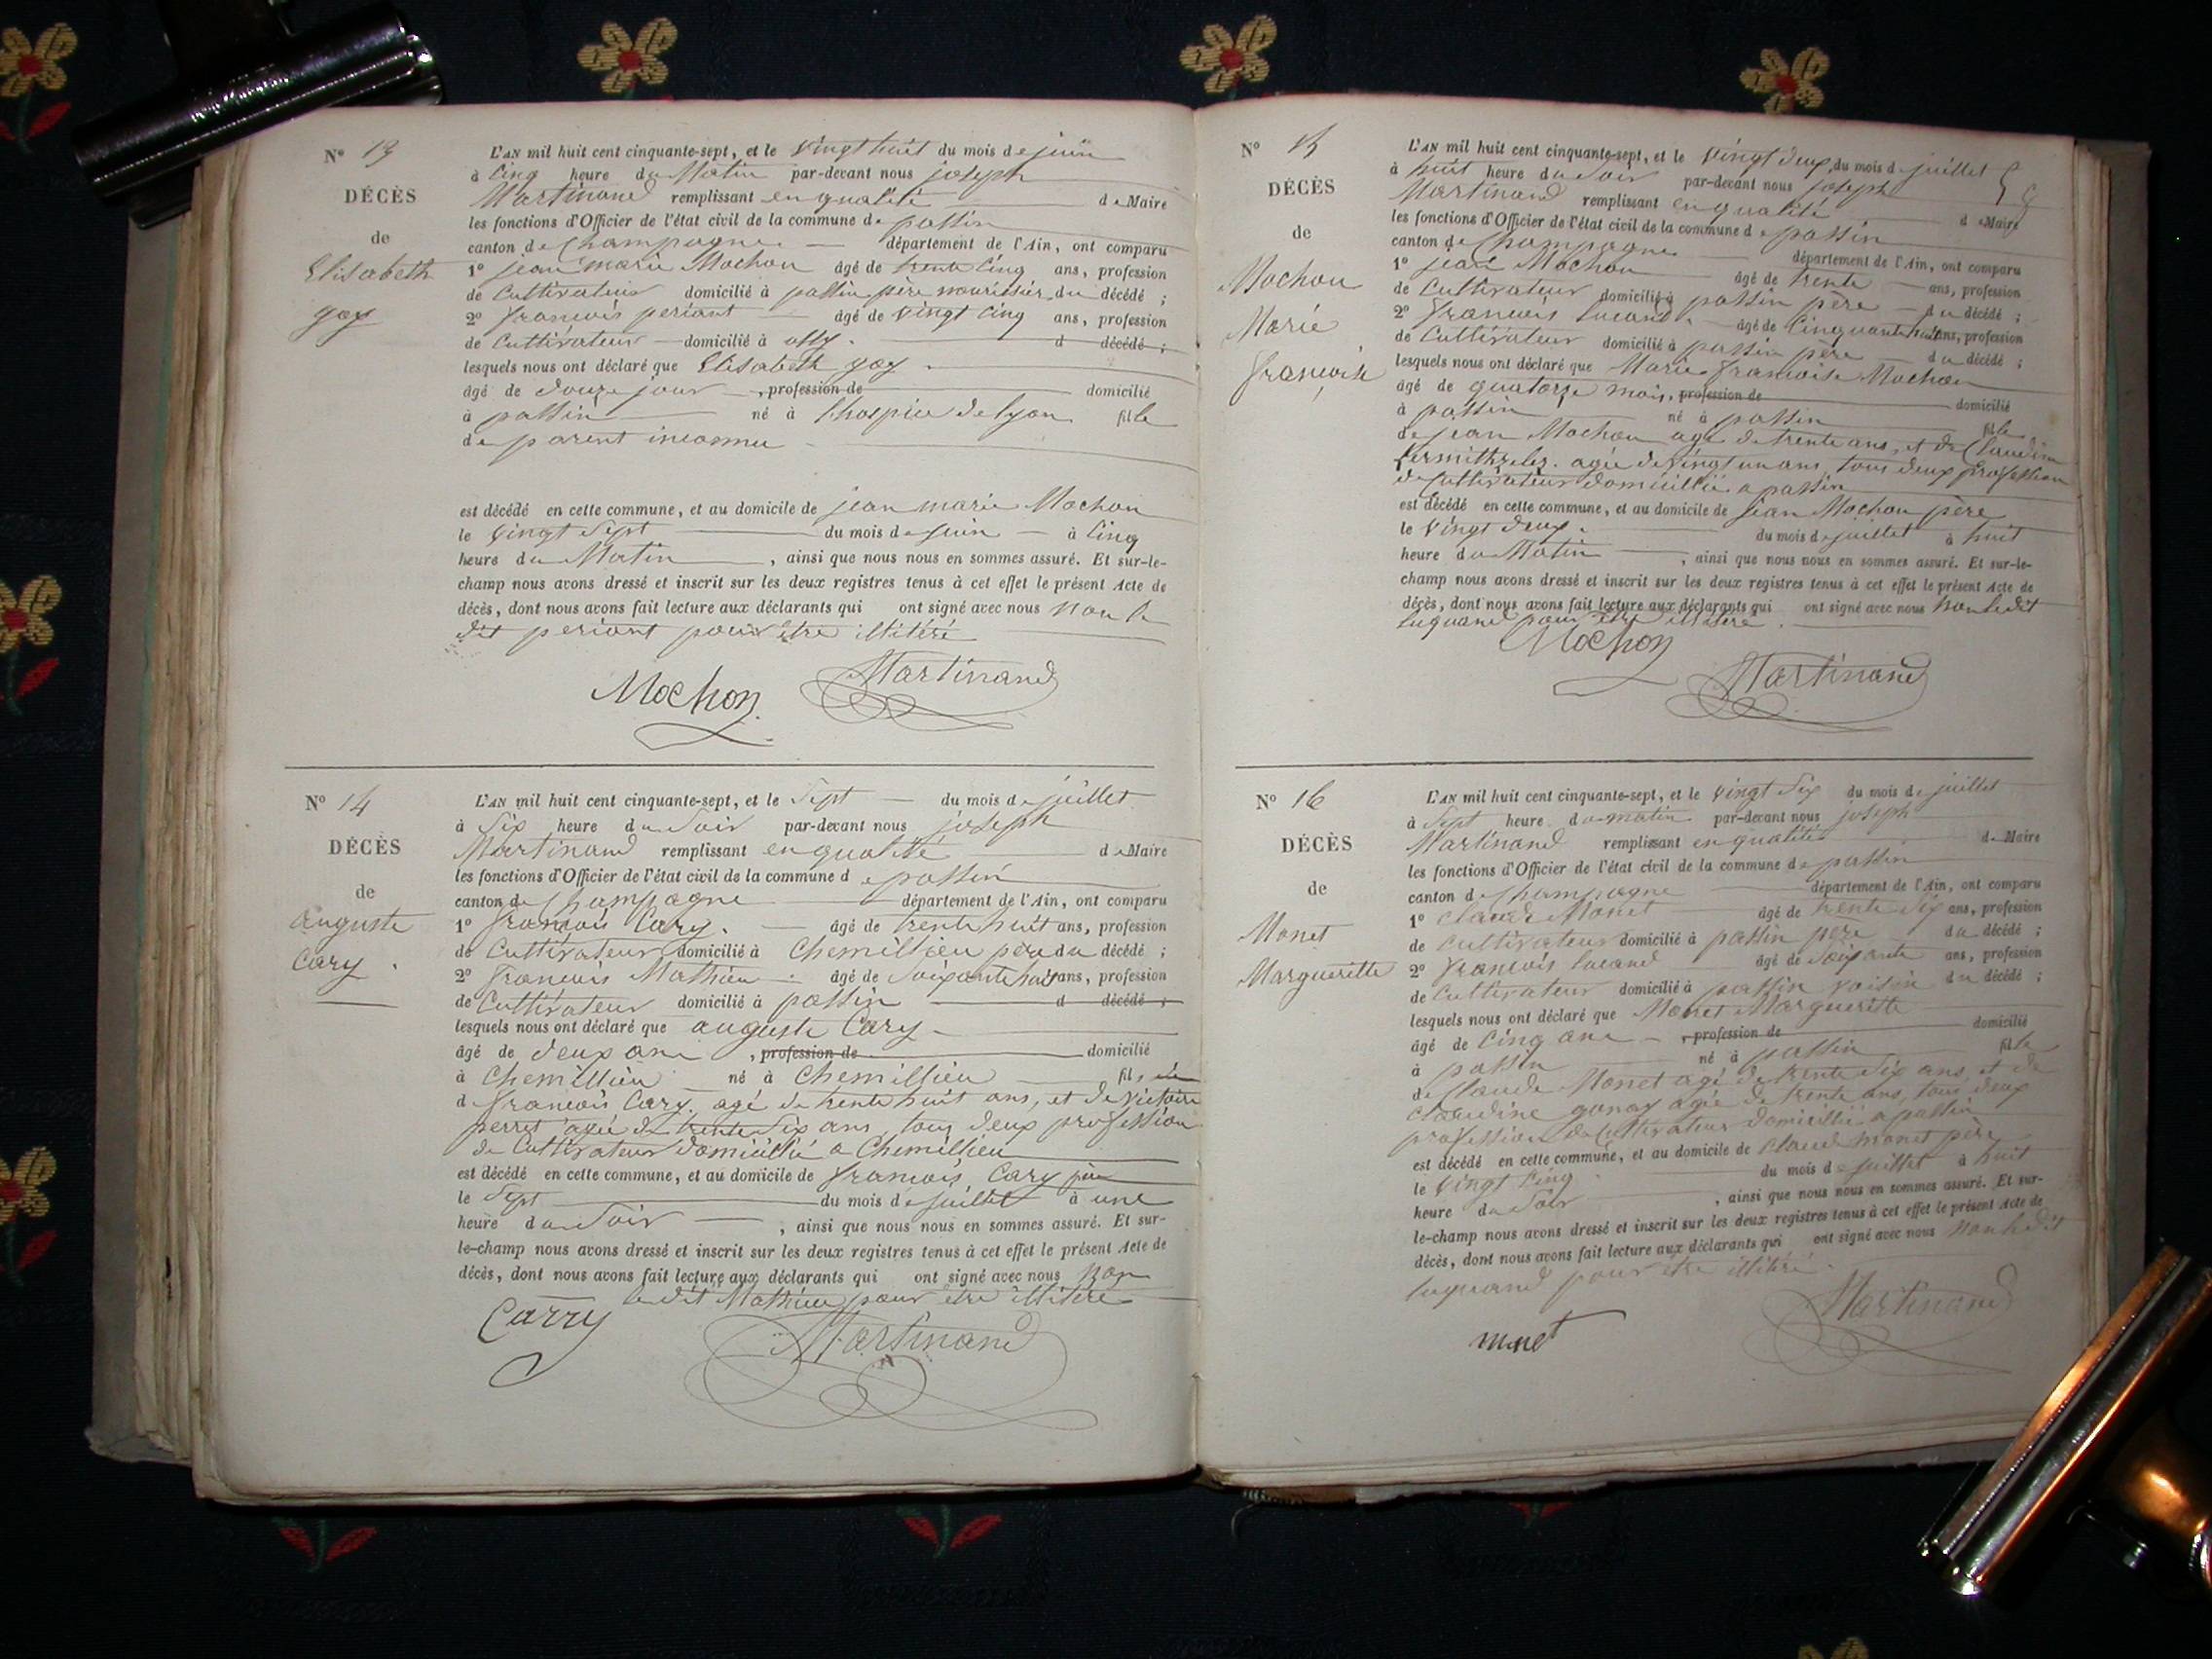 N° 13
DÉCÈS
de
Elisabeth
goy
L'AN mil huit cent cinquante-sept, et le vingt huit du mois de juin
à Cinq heure du Matin par-devant nous joseph
Martinand remplissant en qualité de Maire
les fonctions d'Officier de l'état civil de la commune de passin
canton de Champagne département de l'Ain, ont comparu
1° jean marie Mochon âgé de trente Cinq ans, profession
de Cultivateur domicilié à passin père nouricier du décédé ;
2° francois periant âgé de vingt Cinq ans, profession
de Cultivateur domicilié à d décédé ;
lesquels nous ont déclaré que Elisabeth goy
âgé de douze jour , profession de domicilié
à passin né à lhospice de lyon fille
de parent inconnu
est décédé en cette commune, et au domicile de jean marie Mochon
le vingt Sept du mois de juin à Cinq
heure du Matin , ainsi que nous nous en sommes assuré. Et sur-le-
champ nous avons dressé et inscrit sur les deux registres tenus à cet effet le présent Acte de
décès, dont nous avons fait lecture aux déclarants qui ont signé avec nous non le
dit periant pour être illitéré
Mochon Martinand
N° 14
DÉCÈS
de
auguste
Cary
L'AN mil huit cent cinquante-sept, et le Sept du mois de juillet
à Six heure du Soir par-devant nous joseph
Martinand remplissant en qualité de Maire
les fonctions d'Officier de l'état civil de la commune de passin
canton de Champagne département de l'Ain, ont comparu
1° francois Cary. âgé de trente huit ans, profession
de Cultivateur domicilié à Chemillieu père du décédé ;
2° francois Mathieu âgé de Soixante huit ans, profession
de Cultivateur domicilié à passin d décédé ;
lesquels nous ont déclaré que auguste Cary
âgé de deux ans , profession de domicilié
à Chemillieu né à Chemillieu fils
de francois Cary. agé de trente huit ans, et de victoire
perret agée de trente Six ans, tous deux profession
de Cultivateur domicillié a Chemillieu
est décédé en cette commune, et au domicile de francois Cary père
le Sept du mois de juillet à une
heure du Soir , ainsi que nous nous en sommes assuré. Et sur-
le-champ nous avons dressé et inscrit sur les deux registres tenus à cet effet le présent Acte de
décès, dont nous avons fait lecture aux déclarants qui ont signé avec nous non
le dit Mathieu pour être illitéré
Carry Martinand
N° 15
DÉCÈS
de
Mochon
Marie
francoise
L'AN mil huit cent cinquante-sept, et le vingt deux du mois de juillet
à huit heure du Soir par-devant nous joseph
Martinand remplissant en qualité de Maire
les fonctions d'Officier de l'état civil de la commune de passin
canton de Champagne département de l'Ain, ont comparu
1° jean Mochon âgé de trente ans, profession
de Cultivateur domicilié à passin père du décédé ;
2° francois lucand âgé de Cinquante huit ans, profession
de Cultivateur domicilié à passin père du décédé ;
lesquels nous ont déclaré que Marie francoise Mochon
âgé de quatorze mois, profession de domicilié
à passin né à passin fille
de jean Mochon agé de trente ans, et de Claudine
agée de vingt un ans, tous deux profession
de Cultivateur domicillié a passin
est décédé en cette commune, et au domicile de jean Mochon père
le vingt deux du mois de juillet à huit
heure du Matin , ainsi que nous nous en sommes assuré. Et sur-le-
champ nous avons dressé et inscrit sur les deux registres tenus à cet effet le présent Acte de
décès, dont nous avons fait lecture aux déclarants qui ont signé avec nous non ledit
luquand pour être illitéré
Mochon
Martinand
N° 16
DÉCÈS
de
Monet
Margueritte
L'AN mil huit cent cinquante-sept, et le vingt Six du mois de juillet
à Sept heure du matin par-devant nous joseph
Martinand remplissant en qualité de Maire
les fonctions d'Officier de l'état civil de la commune de passin
canton de Champagne département de l'Ain, ont comparu
1° Claude Monet âgé de trente Six ans, profession
de Cultivateur domicilié à passin père du décédé ;
2° francois lucand âgé de Soixante ans, profession
de Cultivateur domicilié à passin voisin du décédé ;
lesquels nous ont déclaré que Monet Margueritte
âgé de Cinq ans , profession de domicilié
à passin né à passin fille
de Claude Monet agé de trente Six ans, et de
Claudine gonay agée de trente ans, tous deux
profession de Cultivateur domicillié a passin
est décédé en cette commune, et au domicile de Claud monet père
le vingt Cinq du mois de juillet à huit
heure du Soir , ainsi que nous nous en sommes assuré. Et sur-
le-champ nous avons dressé et inscrit sur les deux registres tenus à cet effet le présent Acte de
décès, dont nous avons fait lecture aux déclarants qui ont signé avec nous non ledit
luquand pour être illitéré
monet Martinand